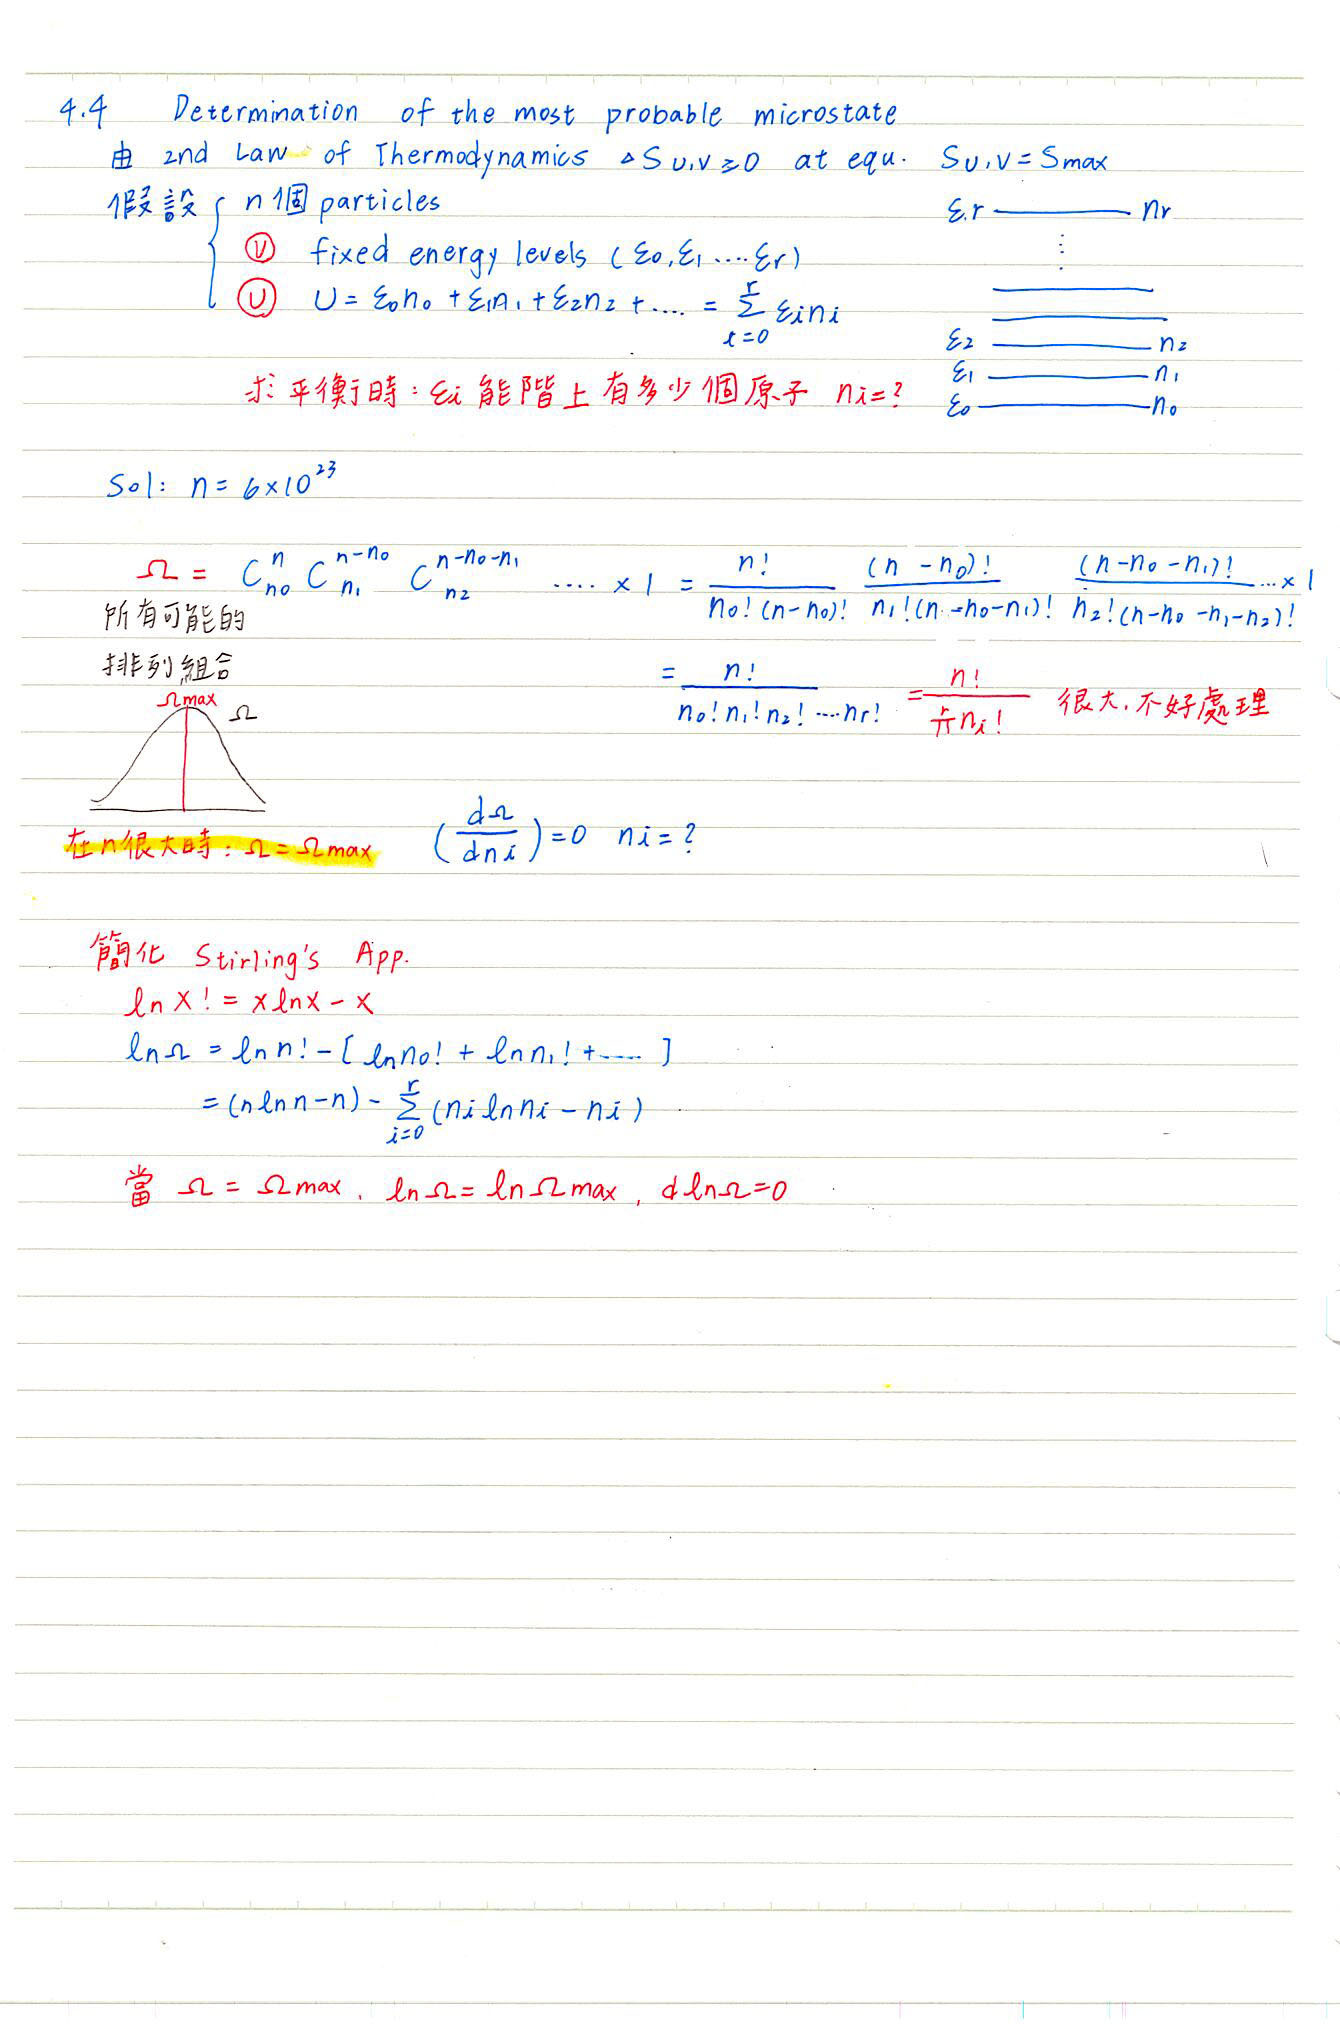 4.4 Determination of the most probable microstate
由 2nd Law of Thermodynamics ΔS U,V ≥ 0 at equ. S U,V = Smax
假設 { n個 particles
Ⓥ fixed energy levels (ε0, ε1 .... εr)
Ⓤ U = ε0n0 + ε1n1 + ε2n2 + .... = Σ_{i=0}^{r} εini
εr nr
⋮
ε2 n2
ε1 n1
ε0 n0
求平衡時: εi 能階上有多少個原子 ni=?
Sol: n = 6×10^23
Ω = C^n_{n0} C^{n-n0}_{n1} C^{n-n0-n1}_{n2} .... × 1 = n!/(n0!(n-n0)!) (n-n0)!/(n1!(n-n0-n1)!) (n-n0-n1)!/(n2!(n-n0-n1-n2)!) ... × 1
所有可能的
排列組合
= n!/(n0! n1! n2! .... nr!) = n!/(π^r ni!) 很大,不好處理
Ωmax Ω
在n很大時: Ω = Ωmax (dΩ/dni) = 0 ni = ?
簡化 Stirling's App.
ln X! = x ln x - x
ln Ω = ln n! - [ ln n0! + ln n1! + ..... ]
= (n ln n - n) - Σ_{i=0}^{r} (ni ln ni - ni)
當 Ω = Ωmax, ln Ω = ln Ωmax, d ln Ω = 0